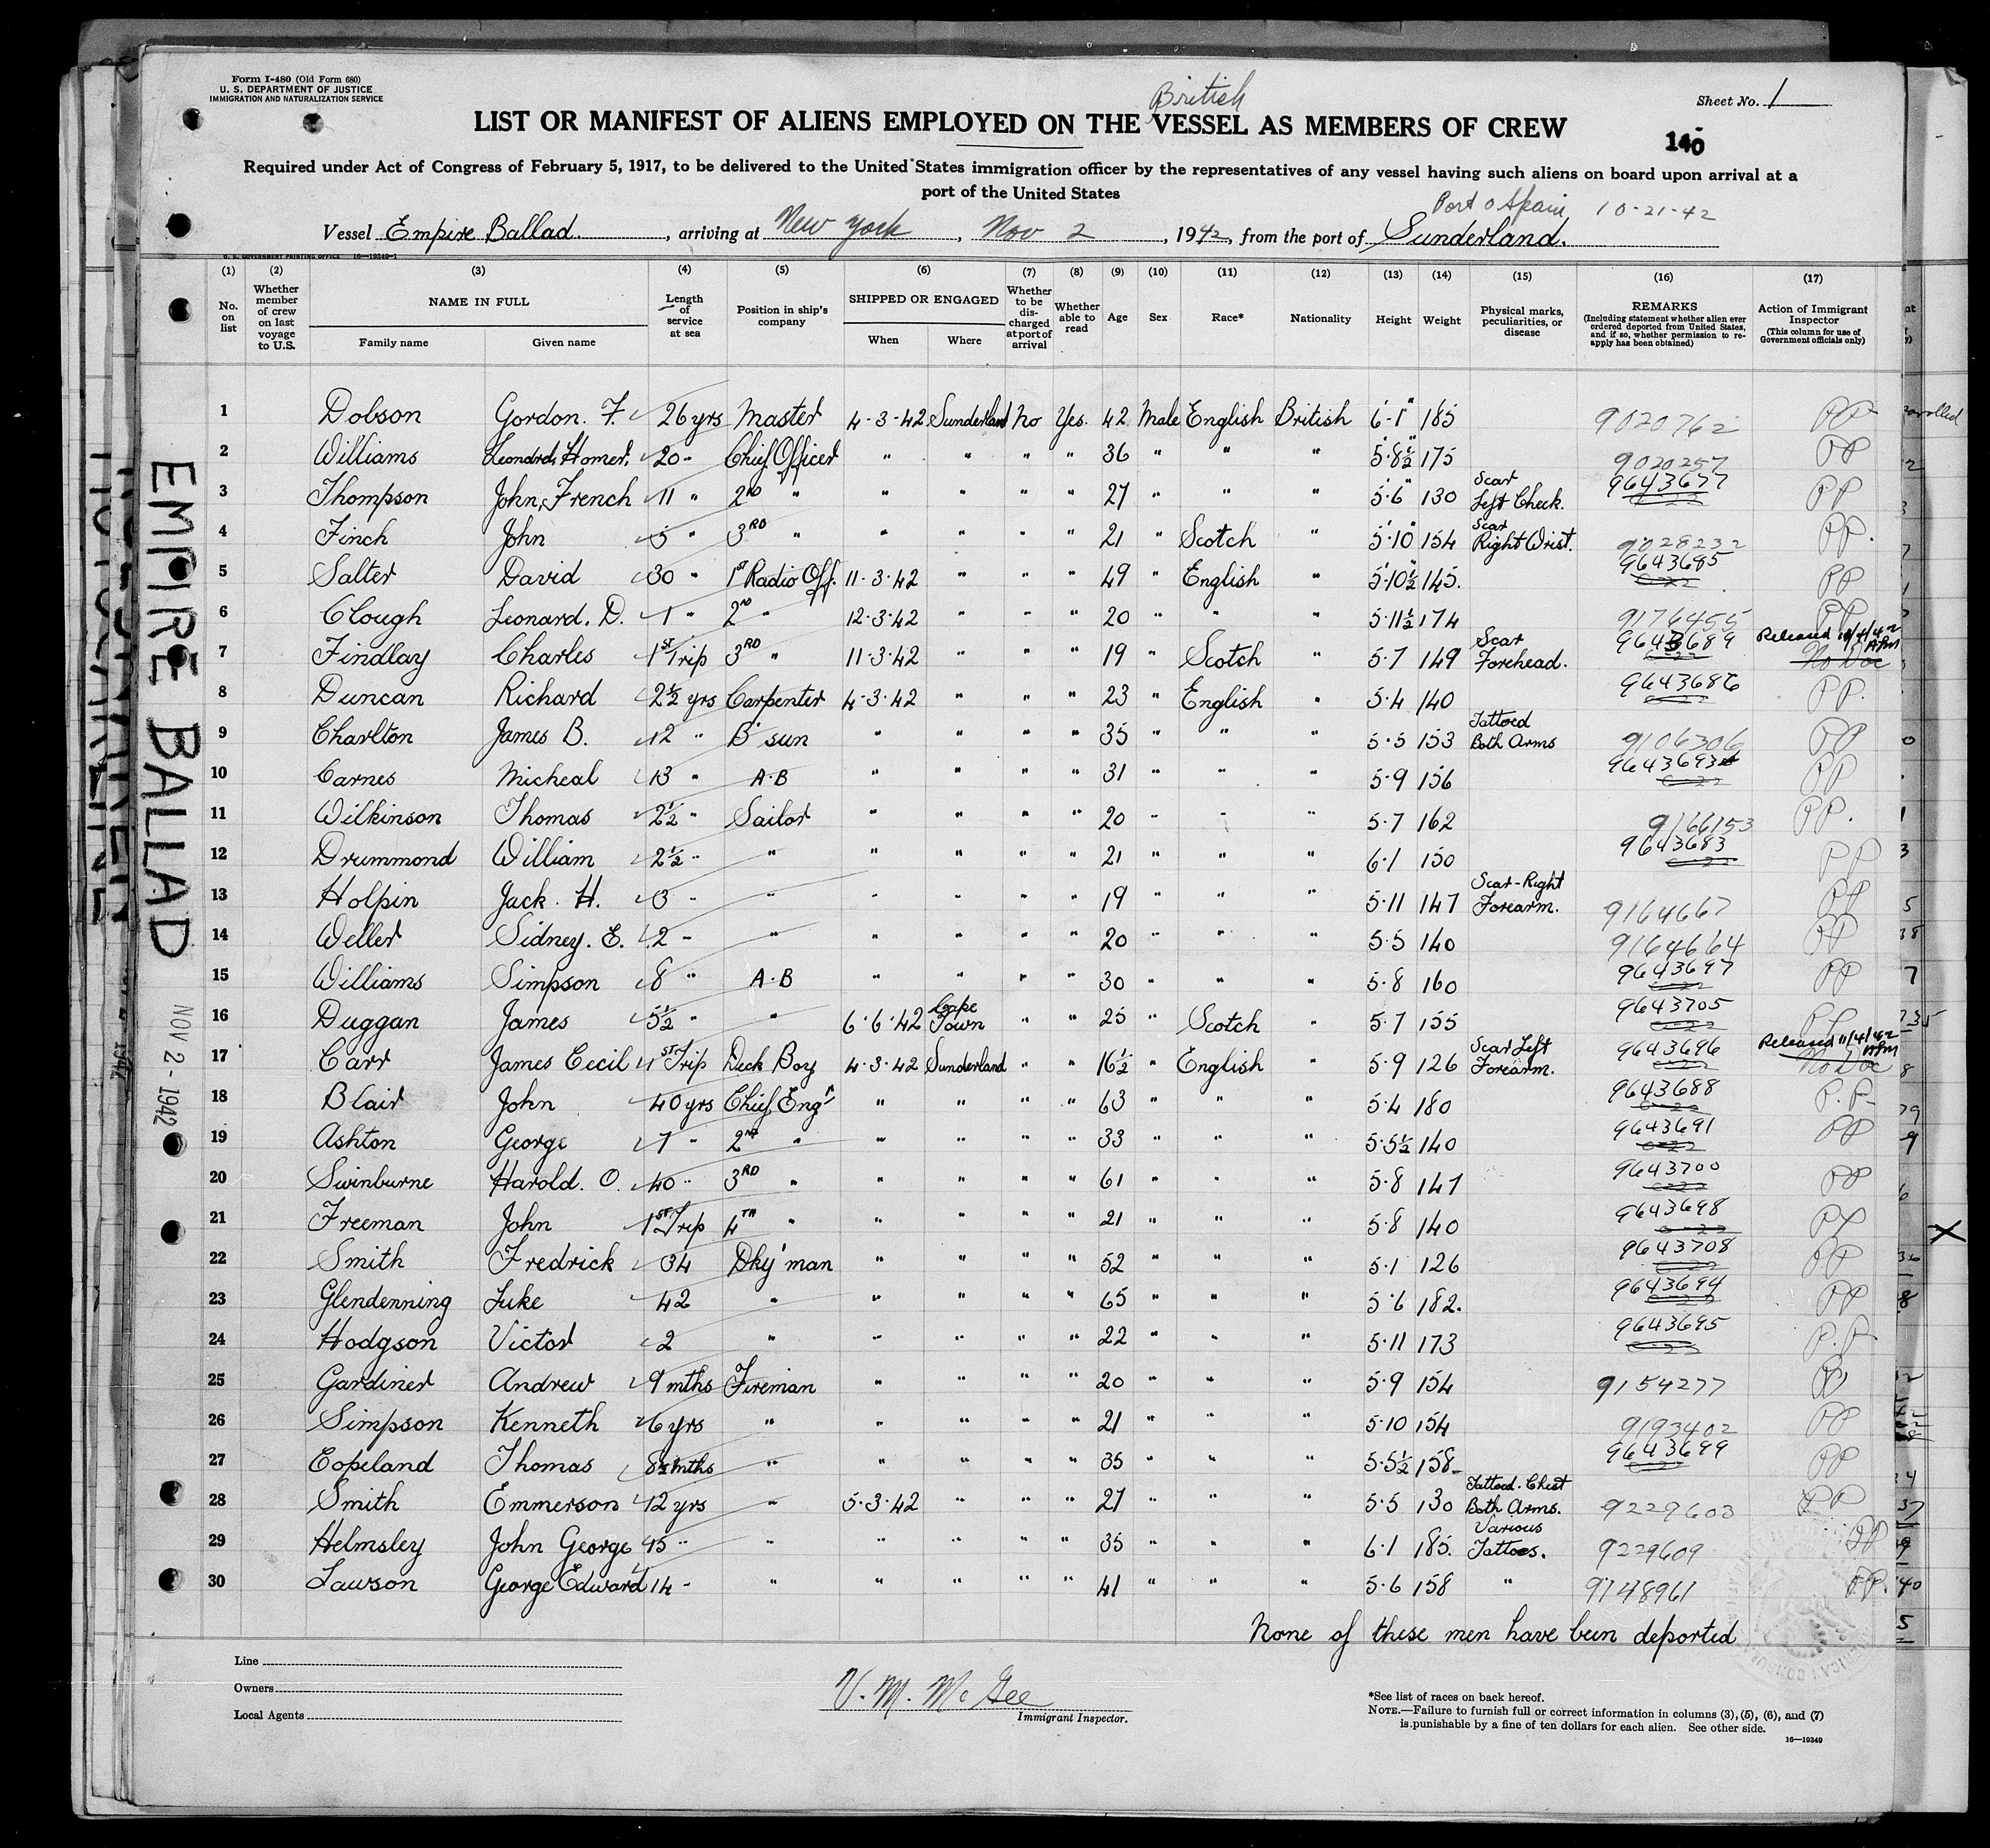 Form I-480 (Old Form 680)
U. S. DEPARTMENT OF JUSTICE
IMMIGRATION AND NATURALIZATION SERVICE
Sheet No. 1
British
LIST OR MANIFEST OF ALIENS EMPLOYED ON THE VESSEL AS MEMBERS OF CREW
140
Required under Act of Congress of February 5, 1917, to be delivered to the United States immigration officer by the representatives of any vessel having such aliens on board upon arrival at a
port of the United States
Port o Spain 10-21-42
Vessel Empire Ballad. , arriving at New York , Nov 2 , 1942, from the port of Sunderland.
U. S. GOVERNMENT PRINTING OFFICE 16—19349-1
(1) (2) (3) (4) (5) (6) (7) (8) (9) (10) (11) (12) (13) (14) (15) (16) (17)
No. on list
Whether member of crew on last voyage to U.S.
NAME IN FULL
Family name Given name
Length of service at sea
Position in ship's company
SHIPPED OR ENGAGED
When Where
Whether to be discharged at port of arrival
Whether able to read
Age Sex Race* Nationality Height Weight
Physical marks, peculiarities, or disease
REMARKS
(Including statement whether alien ever ordered deported from United States, and if so, whether permission to re-apply has been obtained)
Action of Immigrant Inspector
(This column for use of Government officials only)
1 Dobson Gordon. F. 26 yrs Master 4-3-42 Sunderland No Yes. 42 Male English British 6-1" 185 9020762 PP
2 Williams Leonard, Homer, 20 " Chief Officer " " " " 36 " " " 5.8½ 175 9020257 PP
3 Thompson John, French 11 " 2ND " " " " " 27 " " " 5.6" 130 Scar Left Cheek. 9643677 PP
4 Finch John 5 " 3RD " " " " " 21 " Scotch " 5.10" 154 Scar Right Wrist. 9028232 PP.
5 Salter David 30 " 1ST Radio Off. 11.3.42 " " " 49 " English " 5.10½ 145. 9643685 PP
6 Clough Leonard. D. 1 " 2ND " 12.3.42 " " " 20 " " " 5.11½ 174 9176455 PP
7 Findlay Charles 1ST Trip 3RD " 11.3.42 " " " 19 " Scotch " 5.7 149 Scar Forehead. 9643689 Released 11/4/42 No Doc
8 Duncan Richard 2½ yrs Carpenter 4.3.42 " " " 23 " English " 5.4 140 9643686 PP.
9 Charlton James B. 12 " B'sun " " " " 35 " " " 5.5 153 Tattoed Both Arms 9106306 PP
10 Carnes Micheal 13 " A.B " " " " 31 " " " 5.9 156 9643693 PP
11 Wilkinson Thomas 2½ " Sailor " " " " 20 " " " 5.7 162 9166153 PP.
12 Drummond William 2½ " " " " " " 21 " " " 6.1 150 9643683 PP
13 Holpin Jack. H. 3 " " " " " " 19 " " " 5.11 147 Scar-Right Forearm. 9164667 PP
14 Weller Sidney. E. 2 " " " " " " 20 " " " 5.5 140 9164664 PP
15 Williams Simpson 8 " A.B " " " " 30 " " " 5.8 160 9643697 PP
16 Duggan James 5½ " " 6.6.42 Cape Town " " 25 " Scotch " 5.7 155 9643705 PP
17 Carr James Cecil 1ST Trip Deck Boy 4.3.42 Sunderland " " 16½ " English " 5.9 126 Scar Left Forearm. 9643696 Released 11/4/42 No Doc
18 Blair John 40 yrs Chief Engr " " " " 63 " " " 5.4 180 9643688 P.P
19 Ashton George 7 " 2ND " " " " " 33 " " " 5.5½ 140 9643691 PP
20 Swinburne Harold. O. 40 " 3RD " " " " " 61 " " " 5.8 147 9643700 PP
21 Freeman John 1ST Trip 4TH " " " " " 21 " " " 5.8 140 9643698 PP
22 Smith Fredrick 34 Dky'man " " " " 52 " " " 5.1 126 9643708 PP
23 Glendenning Luke 42 " " " " " 65 " " " 5.6 182. 9643694 PP
24 Hodgson Victor 2 " " " " " 22 " " " 5.11 173 9643695 P.P
25 Gardiner Andrew 9 mths Fireman " " " " 20 " " " 5.9 154 9154277 PP
26 Simpson Kenneth 6 yrs " " " " " 21 " " " 5.10 154 9193402 PP
27 Copeland Thomas 8½ mths " " " " " 35 " " " 5.5½ 158 9643699 PP
28 Smith Emmerson 12 yrs " 5.3.42 " " " 27 " " " 5.5 130 Tattoed. Chest Both Arms. 9229603 PP
29 Helmsley John George 15 " " " " " " 35 " " " 6.1 185. Various Tattoes. 9229609 PP
30 Lawson George Edward 14 " " " " " " 41 " " " 5.6 158 " 9748961 PP.
None of these men have been deported
EMPIRE BALLAD
NOV 2 - 1942
Line
Owners
Local Agents
V. M. McGee
Immigrant Inspector.
*See list of races on back hereof.
NOTE.—Failure to furnish full or correct information in columns (3), (5), (6), and (7)
is punishable by a fine of ten dollars for each alien. See other side.
16—19349